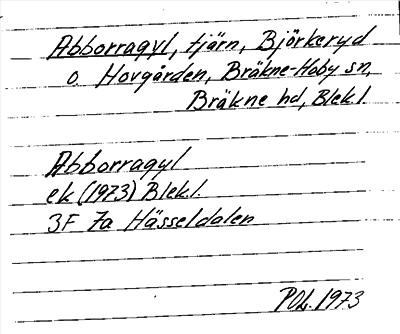 Abborragyl, tjärn, Björkeryd
o. Hovgården, Bräkne-Hoby sn,
Bräkne hd, Blek.l.
Abborragyl
ek (1973) Blek.l.
3F 7a Hässeldalen
POL. 1973